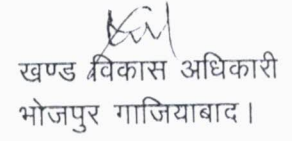 खण्ड विकास अधिकारी
भोजपुर गाजियाबाद।